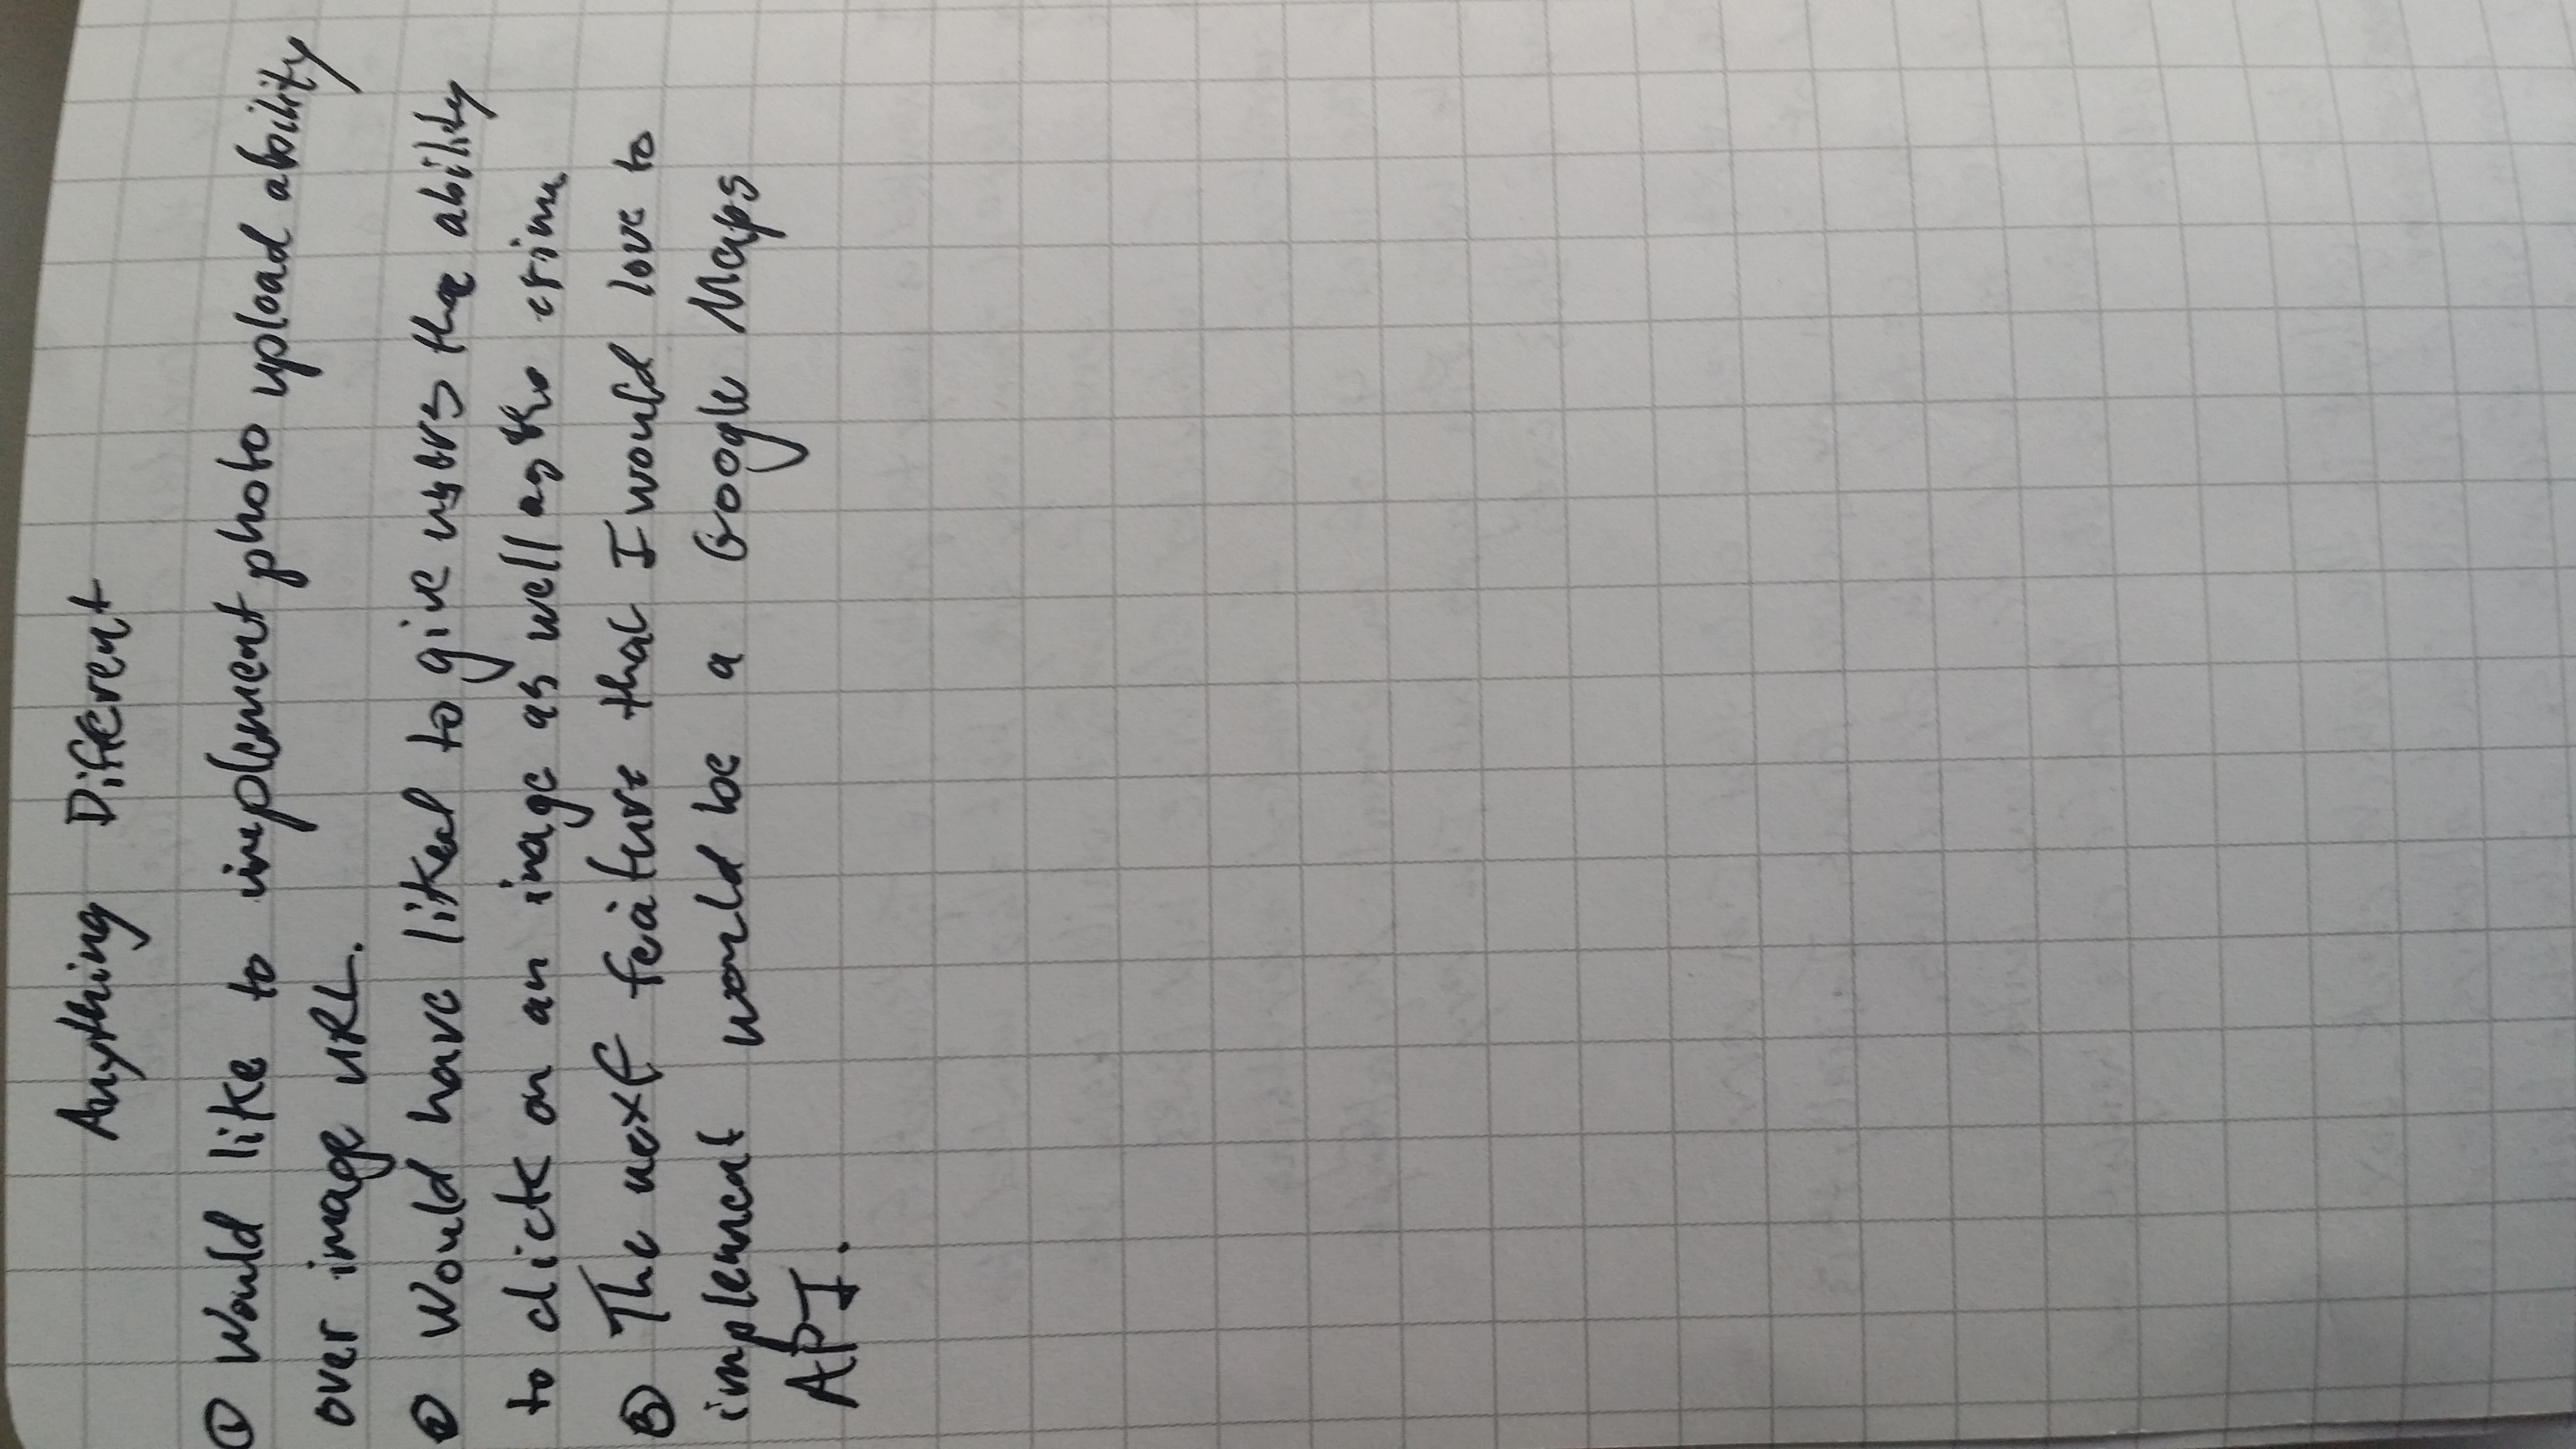 Anything Different
① Would like to implement photo upload ability
over image URL.
② Would have liked to give users the ability
to click on an image as well as the crime
③ The next feature that I would love to
implement would be a Google Maps
API.